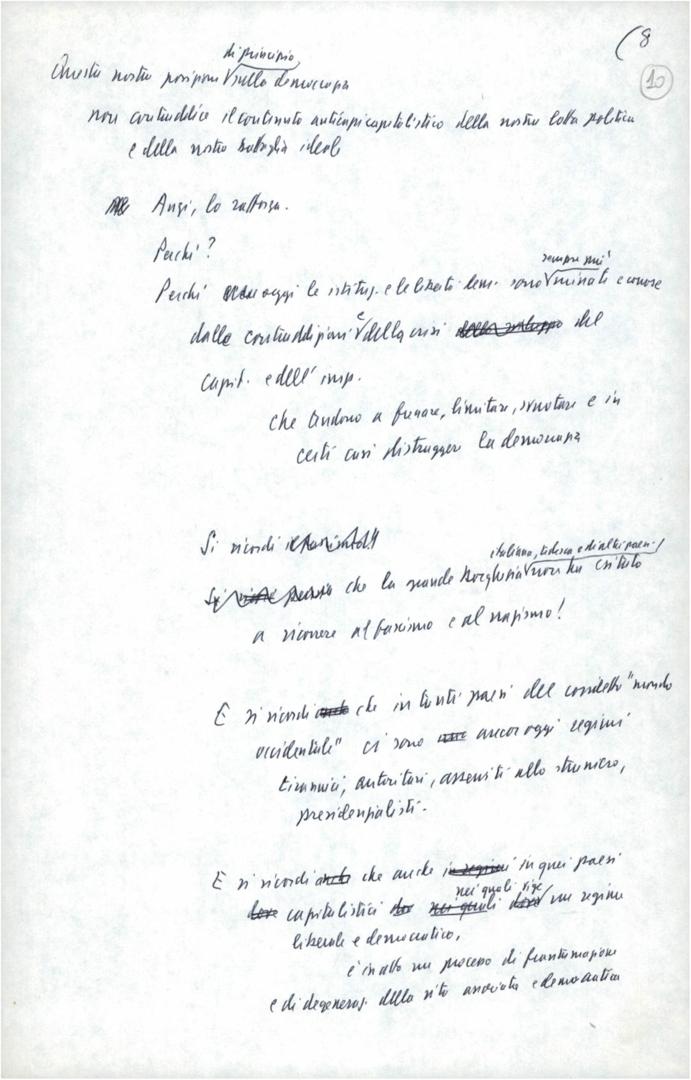 (8
10
di principio
Questa nostra posizione sulla democrazia
non contraddice il contenuto anticapitalistico della nostra lotta politica
e della nostra battaglia ideale
Anzi, lo rafforza.
Perché?
sempre più
Perché oggi le istituz. e le libertà dem. sono minate e corrose
dalle contraddizioni e della crisi dello sviluppo del
capit. e dell'imp.
che tendono a frenare, limitare, svuotare e in
certi casi distruggere la democrazia
Si ricordi
italiana, tedesca e di altri paesi
che la grande borghesia non ha esitato
a ricorrere al fascismo e al nazismo!
E si ricordi anche che in tanti paesi del cosidetto "mondo
occidentale" ci sono ancor oggi regimi
tirannici, autoritari, asserviti allo straniero,
presidenzialisti.
E si ricordi anche che anche in regimi in quei paesi
nei quali vige
dove capitalistici nei quali dove un regime
liberale e democratico,
è in atto un processo di frantumazione
e di degeneraz. della vita associata e democratica